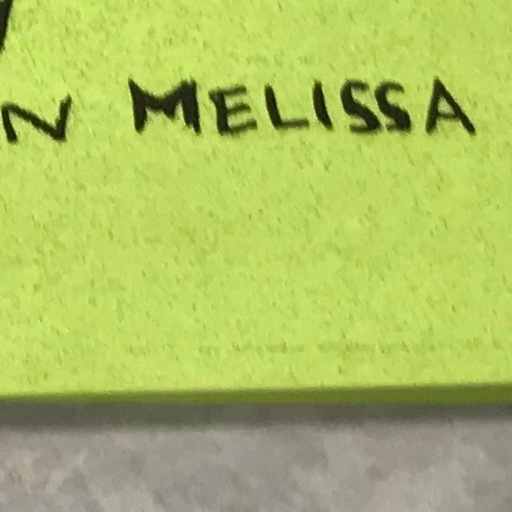 N MELISSA